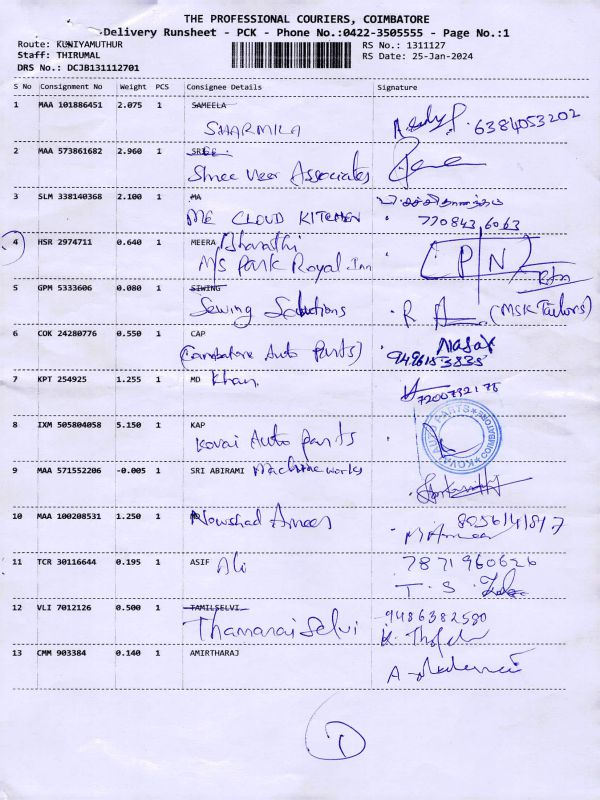 THE PROFESSIONAL COURIERS, COIMBATORE
Delivery Runsheet - PCK - Phone No.:0422-3505555 - Page No.:1
Route: KUNIYAMUTHUR
RS No.: 1311127
Staff: THIRUMAL
RS Date: 25-Jan-2024
DRS No.: DCJB131112701
S No Consignment No Weight PCS Consignee Details Signature
1 MAA 101886451 2.075 1 SAMEELA
SHARMILA 6384053202
2 MAA 573861682 2.960 1
Shree Veer Associates
3 SLM 338140368 2.100 1 MA
ME CLOUD KITCHEN 770843,6063
4 HSR 2974711 0.640 1 MEERA Bharathi
M/s Park Royal Inn PN
5 GPM 5333606 0.080 1 SIWING
Sewing Solutions R (MSK Tailors)
6 COK 24280776 0.550 1 CAP
(Coimbatore Auto Parts) 9496153835
7 KPT 254925 1.255 1 MD Khan.
7200792175
8 IXM 505804058 5.150 1 KAP
Kovai Auto parts KOVAI AUTO PARTS COIMBATORE
9 MAA 571552206 -0.005 1 SRI ABIRAMI Machine works
10 MAA 100208531 1.250 1 Nowshad Ameer 8056141817
11 TCR 30116644 0.195 1 ASIF Ali 7871960626
T. S.
12 VLI 7012126 0.500 1 TAMILSELVI 9486382580
Thamarai Selvi K.
13 CMM 903384 0.140 1 AMIRTHARAJ
A